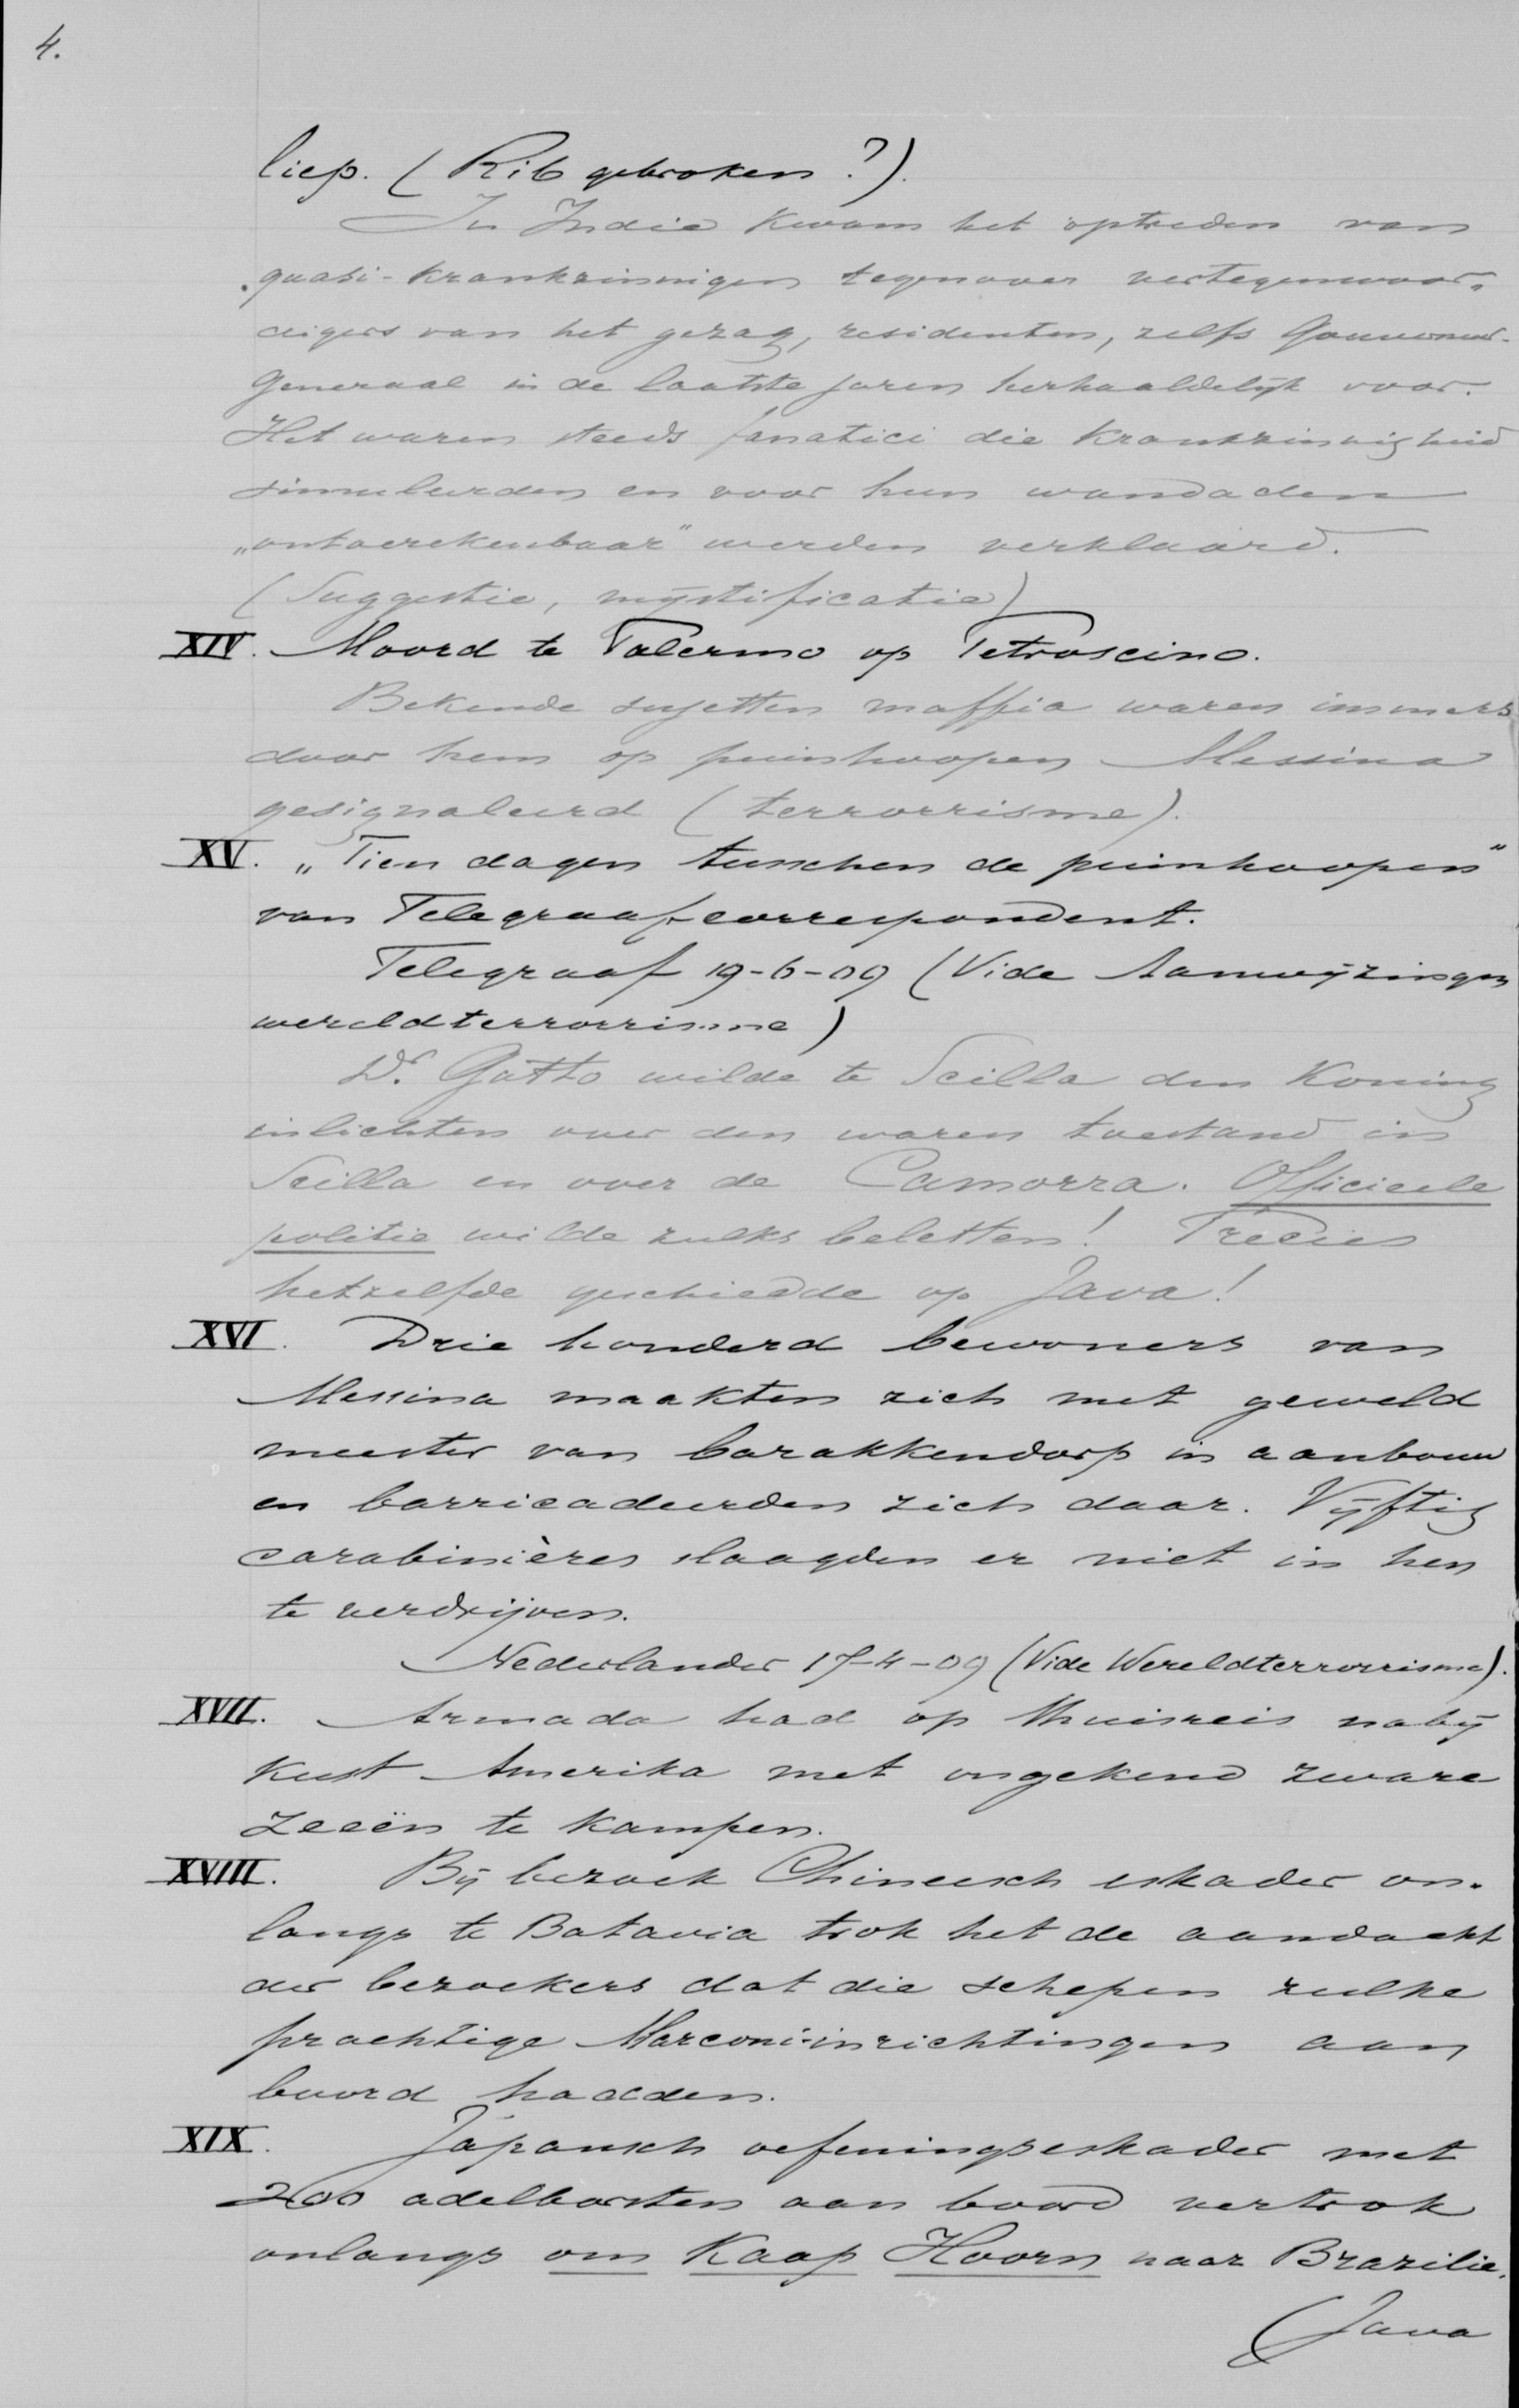 4.
liep. (Rib gebroken?).
In Indië kwam het optreden van
quasi-krankzinnigen tegenover vertegenwoor-
digers van het gezag, residenten, zelfs Gouverneur-
Generaal in de laatste jaren herhaaldelijk voor.
Het waren steeds fanatici die krankzinnigheid
simuleerden en voor hun wandaden
„ontoerekenbaar” werden verklaard.
(Suggestie, mystificatie)
XIV. Moord te Palermo op Petroscino.
Bekende sujetten maffia waren immers
door hem op puinhoopen Messina
gesignaleerd (terrorrisme).
XV. „Tien dagen tusschen de puinhoopen”
van Telegraaf-correspondent.
Telegraaf 19-6-09 (Vide Aanwijzingen
wereldterrorrisme)
Dr. Gatto wilde te Scilla den Koning
inlichten over den waren toestand in
Scilla en over de Camorra. Officieele
politie wilde zulks beletten! Precies
hetzelfde geschiedde op Java!
XVI. Drie honderd bewoners van
Messina maakten zich met geweld
meester van barakkendorp in aanbouw
en barricadeerden zich daar. Vijftig
carabinières slaagden er niet in hen
te verdrijven.
Nederlander 17-4-09 (Vide Wereldterrorrisme).
XVII. Armada had op thuisreis nabij
kust Amerika met ongekend zware
zeeën te kampen.
XVIII. Bij bezoek Chineesch eskader on-
langs te Batavia trok het de aandacht
der bezoekers dat die schepen zulke
prachtige Marconi-inrichtingen aan
boord hadden.
XIX. Japansch oefeningseskader met
200 adelborsten aan boord vertrok
onlangs om Kaap Hoorn naar Brazilie.
(Java